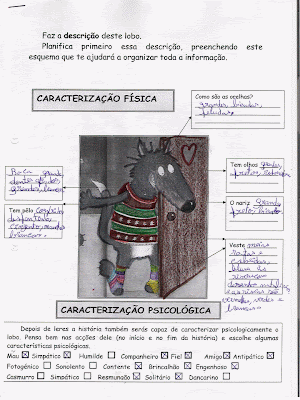 Faz a descrição deste lobo.
Planifica primeiro essa descrição, preenchendo este
esquema que te ajudará a organizar toda a informação.
CARACTERIZAÇÃO FÍSICA
Como são as orelhas?
grandes, bicudas,
peludas
Boca grande
dentes afiados,
grandes, brancos
Tem olhos grandes,
pretos, redondos
Tem pêlo comprido
despenteado,
cinzento,
O nariz grande
preto, bicudo
Veste
CARACTERIZAÇÃO PSICOLÓGICA
Depois de leres a história também serás capaz de caracterizar psicologicamente o
lobo. Pensa bem nas acções dele (no início e no fim da história) e escolhe algumas
características psicológicas.
Mau Simpático Humilde Companheiro Fiel Amigo Antipático
Fotogénico Sonolento Contente Brincalhão Engenhoso
Casmurro Simpático Resmungão Solitário Dançarino